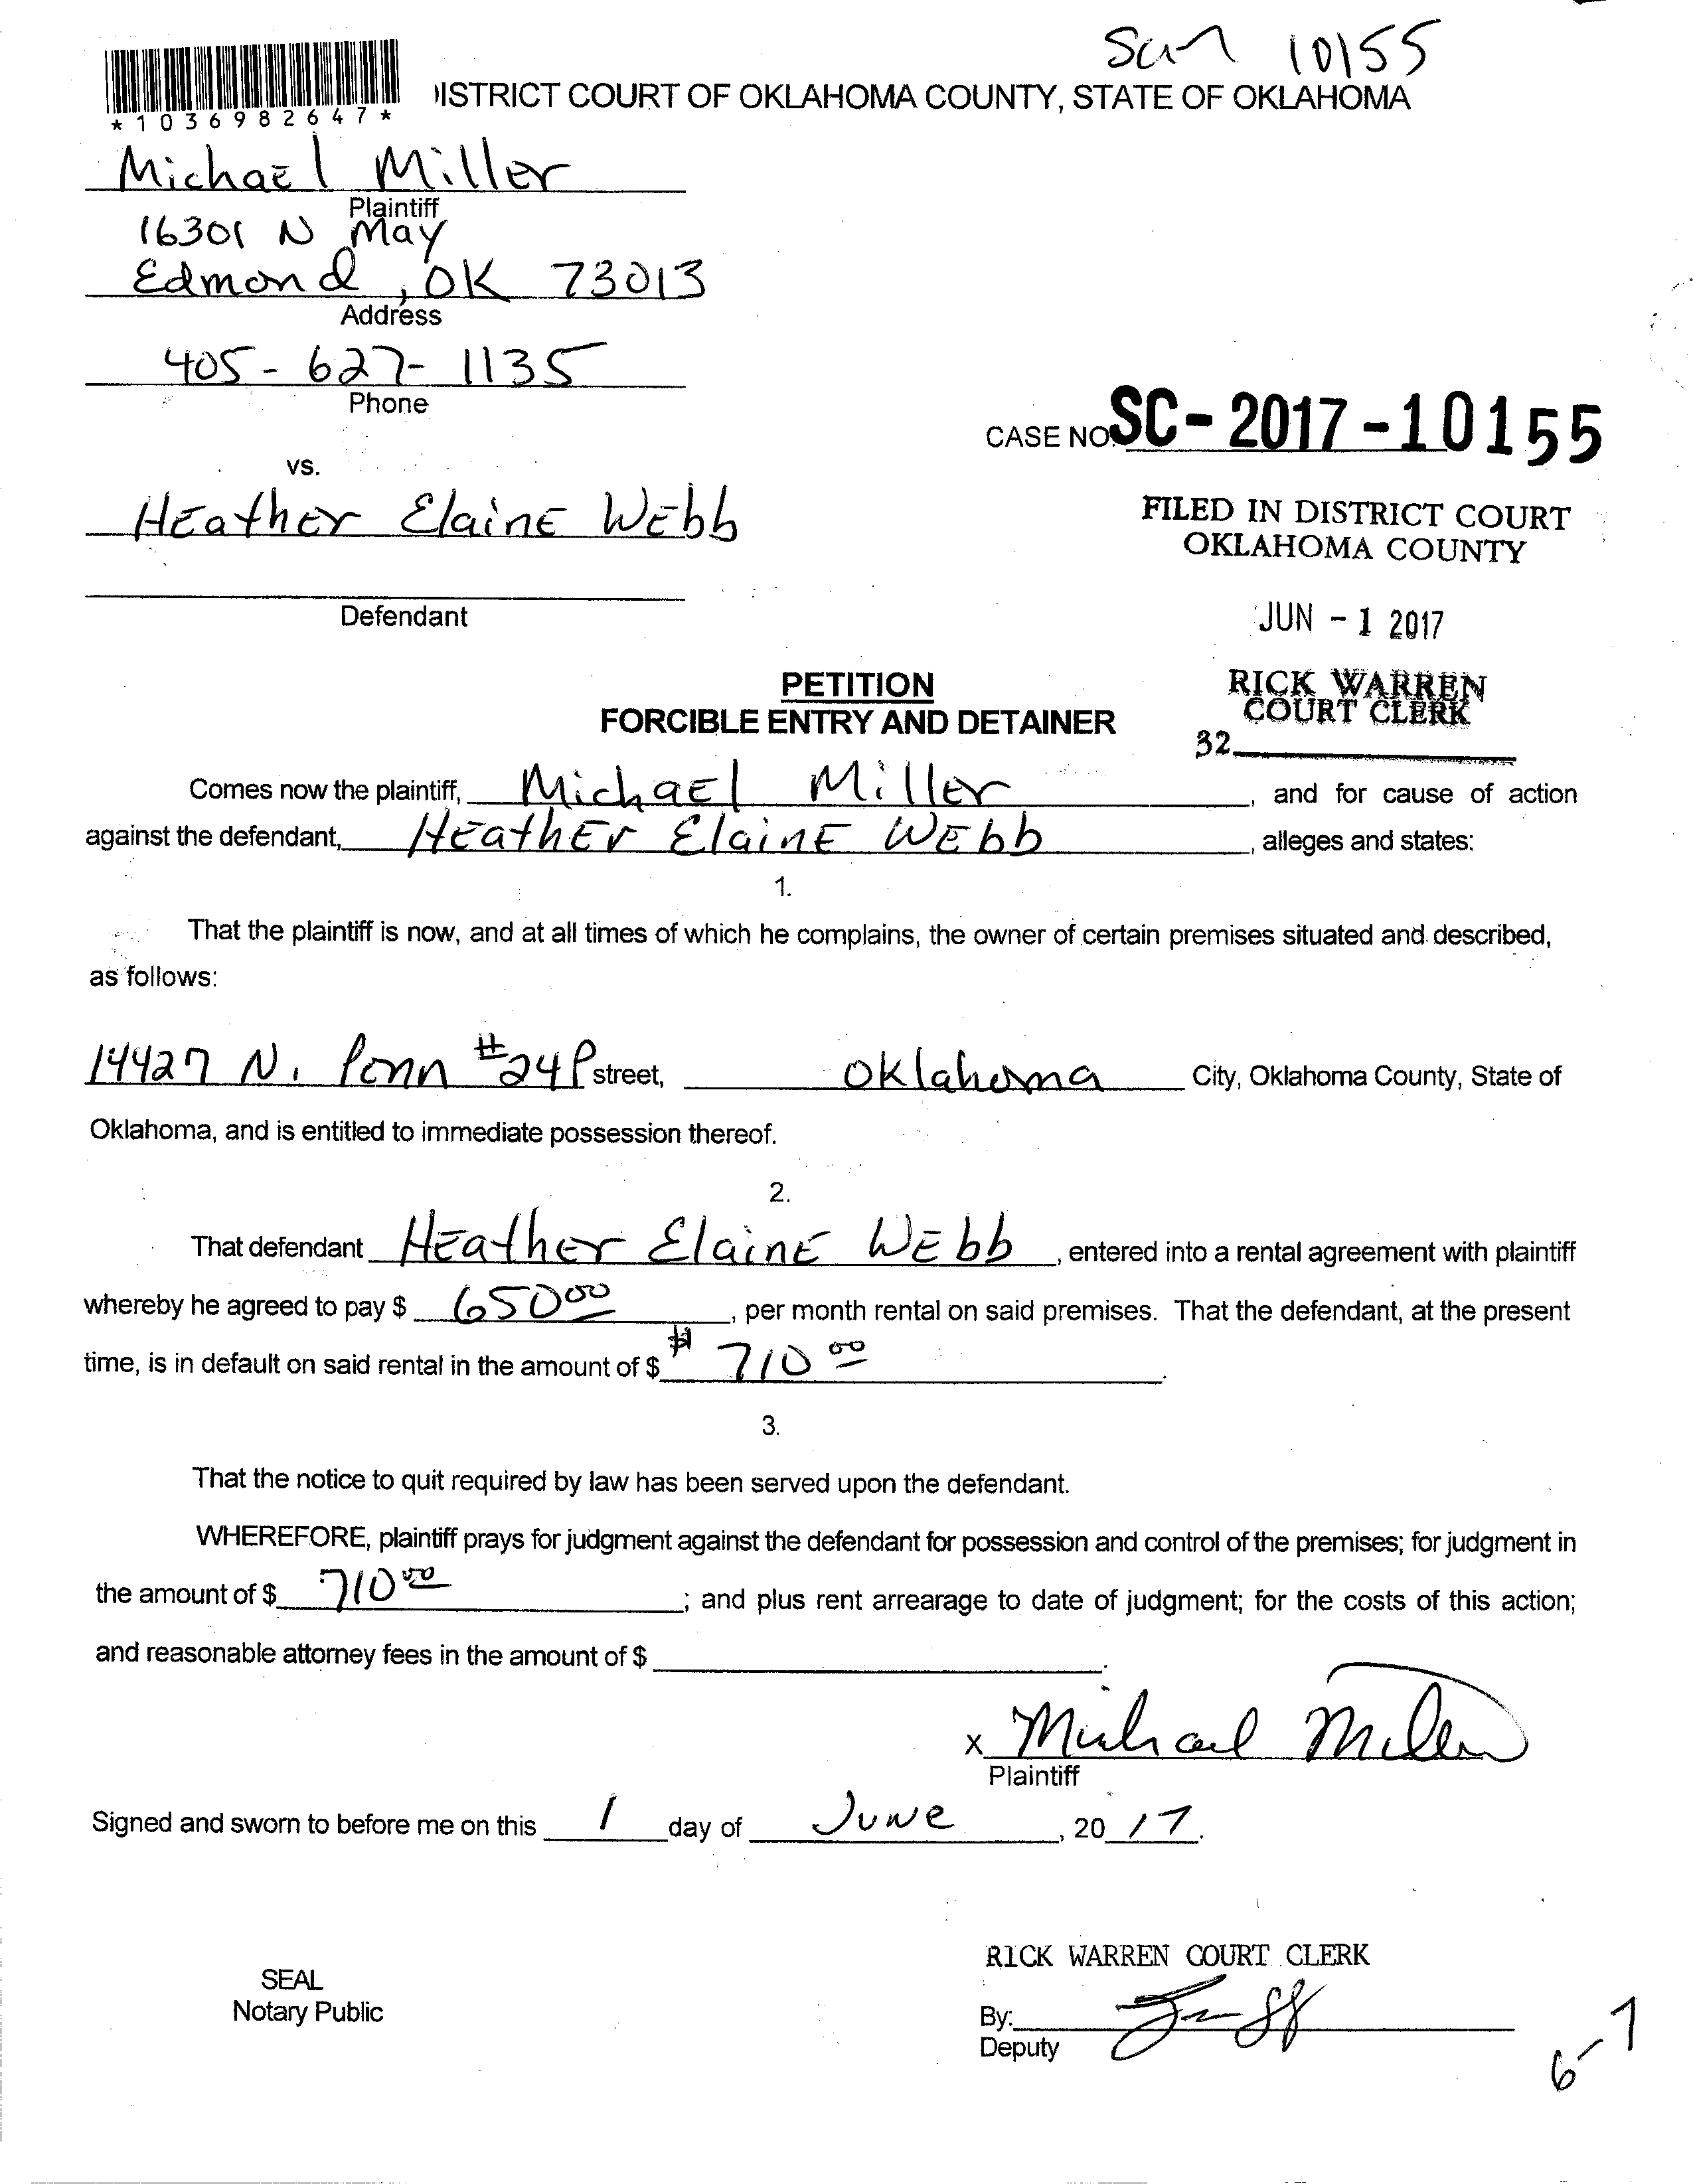 10155
ISTRICT COURT OF OKLAHOMA COUNTY, STATE OF OKLAHOMA
*1036982647*
Michael Miller
Plaintiff
16301 N May
Edmond, OK 73013
Address
405-627-1135
Phone
CASE NO. SC-2017-10155
vs.
Heather Elaine Webb
FILED IN DISTRICT COURT
OKLAHOMA COUNTY
Defendant
JUN - 1 2017
PETITION
FORCIBLE ENTRY AND DETAINER
RICK WARREN
COURT CLERK
32
Comes now the plaintiff, Michael Miller, and for cause of action
against the defendant, Heather Elaine Webb, alleges and states:
1.
That the plaintiff is now, and at all times of which he complains, the owner of certain premises situated and described,
as follows:
14427 N. Penn #24P street, Oklahoma City, Oklahoma County, State of
Oklahoma, and is entitled to immediate possession thereof.
2.
That defendant Heather Elaine Webb, entered into a rental agreement with plaintiff
whereby he agreed to pay $ 650 00, per month rental on said premises. That the defendant, at the present
time, is in default on said rental in the amount of $ $ 710 00.
3.
That the notice to quit required by law has been served upon the defendant.
WHEREFORE, plaintiff prays for judgment against the defendant for possession and control of the premises; for judgment in
the amount of $ 710 00; and plus rent arrearage to date of judgment; for the costs of this action;
and reasonable attorney fees in the amount of $
x Michael Miller
Plaintiff
Signed and sworn to before me on this 1 day of June, 2017.
RICK WARREN COURT CLERK
SEAL
Notary Public
By:
Deputy
6-7